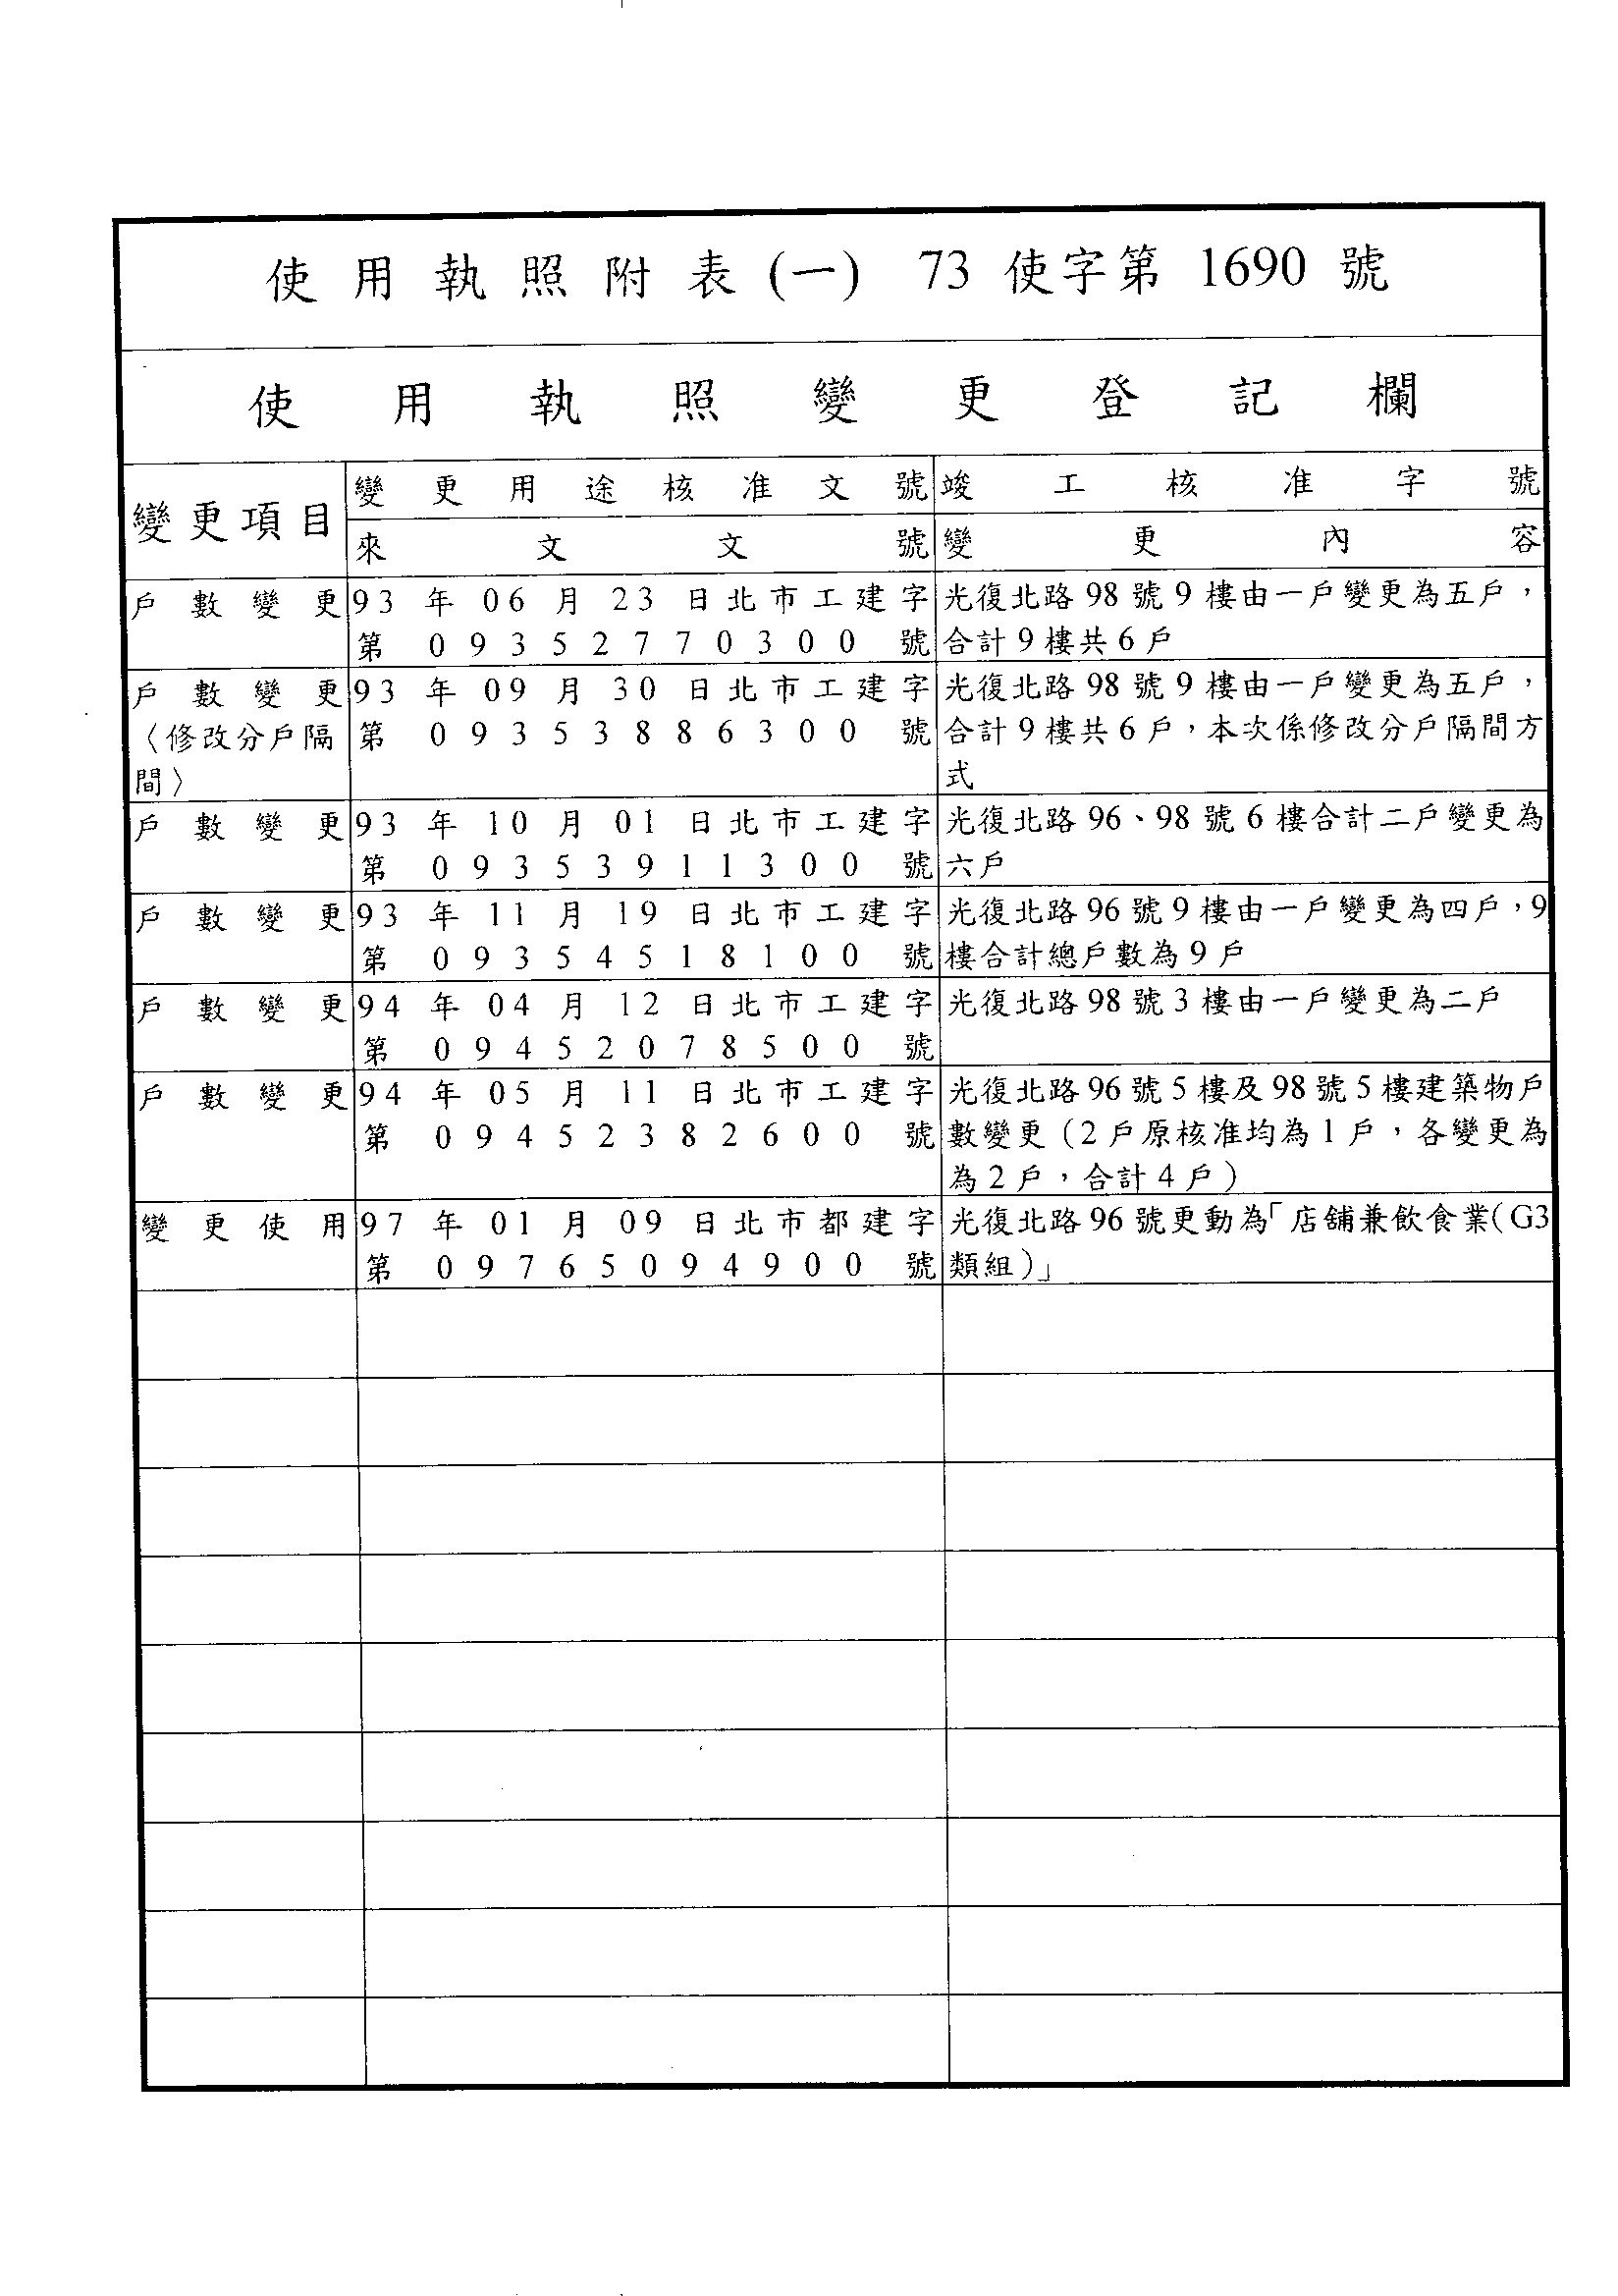 使用執照附表(一) 73 使字第 1690 號
使用執照變更登記欄
變更項目
變更用途核准文號
竣工核准字號
來文文號
變更內容
戶數變更
93年06月23日北市工建字
第09352770300號
光復北路98號9樓由一戶變更為五戶，
合計9樓共6戶
戶數變更
〈修改分戶隔
間〉
93年09月30日北市工建字
第09353886300號
光復北路98號9樓由一戶變更為五戶，
合計9樓共6戶，本次係修改分戶隔間方
式
戶數變更
93年10月01日北市工建字
第09353911300號
光復北路96、98號6樓合計二戶變更為
六戶
戶數變更
93年11月19日北市工建字
第09354518100號
光復北路96號9樓由一戶變更為四戶，9
樓合計總戶數為9戶
戶數變更
94年04月12日北市工建字
第09452078500號
光復北路98號3樓由一戶變更為二戶
戶數變更
94年05月11日北市工建字
第09452382600號
光復北路96號5樓及98號5樓建築物戶
數變更（2戶原核准均為1戶，各變更為
為2戶，合計4戶）
變更使用
97年01月09日北市都建字
第09765094900號
光復北路96號更動為「店舖兼飲食業（G3
類組）」